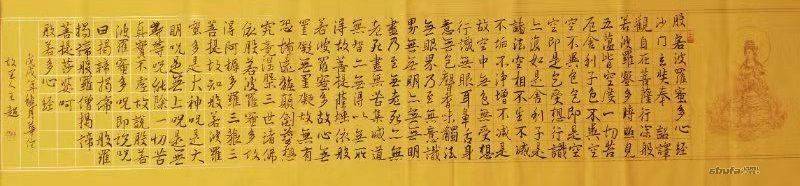 般若波羅蜜多心經
沙门玄奘奉 詔譯
觀自在菩薩行深般
若波羅蜜多時照見
五蘊皆空度一切苦
厄舍利子色不異空
空不異色色即是空
空即是色受想行識
亦復如是舍利子是
諸法空相不生不滅
不垢不淨不增不減是
故空中無色無受想
行識無眼耳鼻舌身
意無色聲香味觸法
無眼界乃至無意識
界無無明亦無無明
盡乃至無老死亦無
老死盡無苦集滅道
無智亦無得以無所
得故菩提薩埵依般
若波羅蜜多故心無
罣礙無罣礙故無有
恐怖遠離顛倒夢想
究竟涅槃三世諸佛
依般若波羅蜜多故
得阿耨多羅三藐三
菩提故知般若波羅
蜜多是大神咒是大
明咒是無上咒是無
等等咒能除一切苦
真實不虛故說般若
波羅蜜多咒即說咒
曰揭諦揭諦 般羅
揭諦般羅僧揭諦
菩提薩婆訶
般若多心經
戊戌年